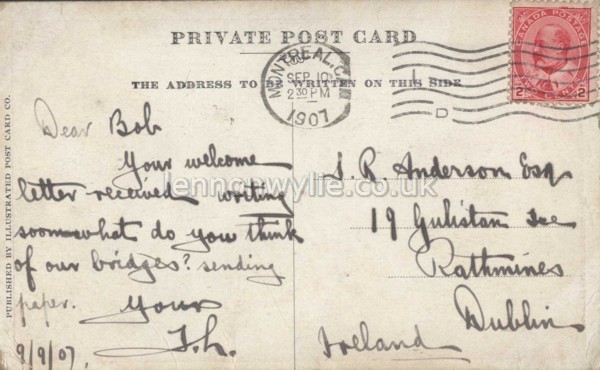 PRIVATE POST CARD
THE ADDRESS TO BE WRITTEN ON THIS SIDE
MONTREAL, CAN
SEP 10
2 30 PM
1907
D
CANADA POSTAGE
2
PUBLISHED BY ILLUSTRATED POST CARD CO.
Dear Bob
Your welcome
letter received writing
soon what do you think
of our bridges? sending
paper. Yours
9/9/07.
J. R. Anderson Esq
19 Gulistan
Rathmines
Dublin
Ireland
lennonwylie.co.uk